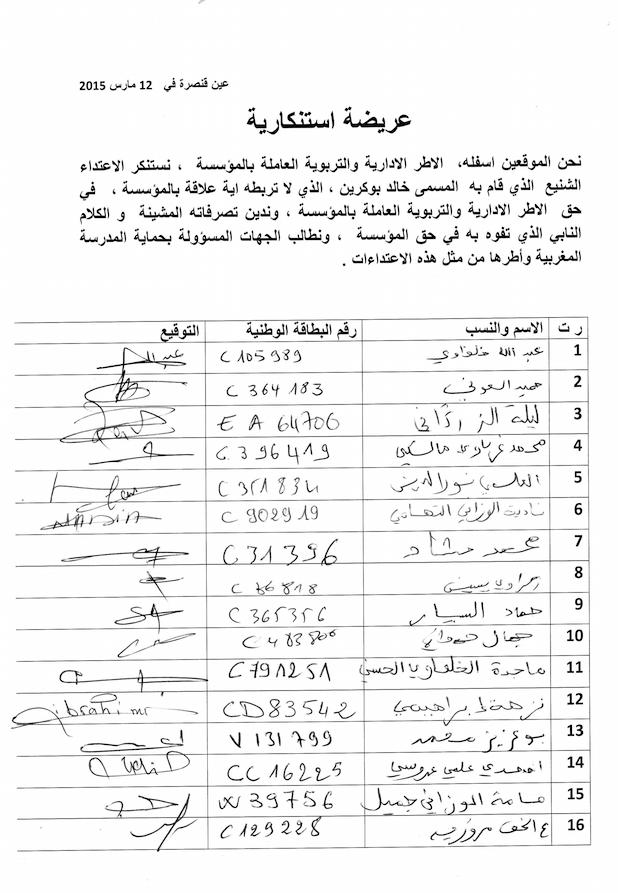 عين قنصرة في 12 مارس 2015
عريضة استنكارية
نحن الموقعين اسفله، الاطر الادارية والتربوية العاملة بالمؤسسة ، نستنكر الاعتداء
الشنيع الذي قام به المسمى خالد بوكرين ، الذي لا تربطه اية علاقة بالمؤسسة ، في
حق الاطر الادارية والتربوية العاملة بالمؤسسة ، وندين تصرفاته المشينة و الكلام
النابي الذي تفوه به في حق المؤسسة ، ونطالب الجهات المسؤولة بحماية المدرسة
المغربية وأطرها من مثل هذه الاعتداءات .
ر ت الاسم والنسب رقم البطاقة الوطنية التوقيع
1 عبد الله C105989
2 حميد العوني C364183
3 ليلة EA64706
4 محمد C396419
5 نور الدين
6 نادية الوزاني التهامي C902919 NADIA
7 محمد C31396
8
9 حماد السيار C365356
10 جمال
11 ماجدة C791251
12 نزهة ابراهيمي CD83542 ibrahimi
13 بوعزيز محمد V131799
14 CC16225
15 الوزاني جميل W39756
16 C129228